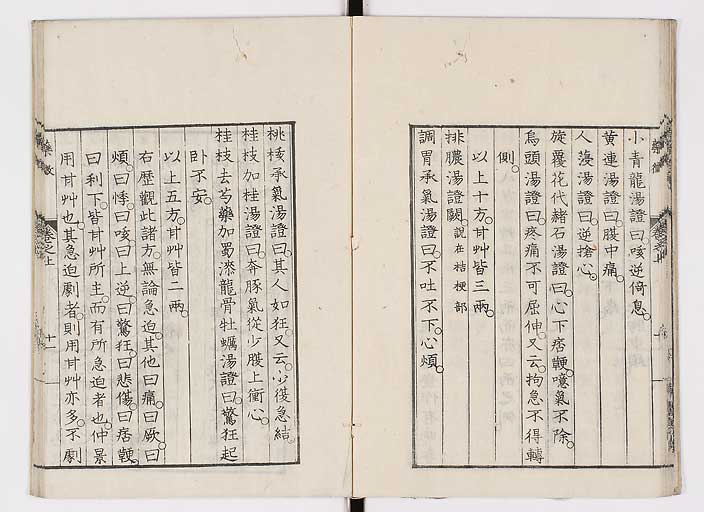 小青龍湯證曰咳逆倚息。
黃連湯證曰腹中痛。
人蓡湯證曰逆搶心。
旋覆花代赭石湯證曰心下痞鞕。噫氣不除。
烏頭湯證曰疼痛不可屈伸。又云。拘急不得轉
側。
以上十方。甘艸皆三兩。
排膿湯證闕。說在桔梗部
調胃承氣湯證曰。不吐不下。心煩。
桃核承氣湯證曰。其人如狂。又云。少腹急結。
桂枝加桂湯證曰。奔豚氣從少腹上衝心。
桂枝去芍藥加蜀漆龍骨牡蠣湯證曰。驚狂起
臥不安。
以上五方。甘艸皆二兩。
右歷觀此諸方。無論急迫。其他曰痛。曰厥。曰
煩。曰悸。曰咳。曰上逆。曰驚狂。曰悲傷。曰痞鞕。
曰利下。皆甘艸所主。而有所急迫者也。仲景
用甘艸也。其急迫劇者。則用甘艸亦多。不劇
藥徵
卷之上
十一